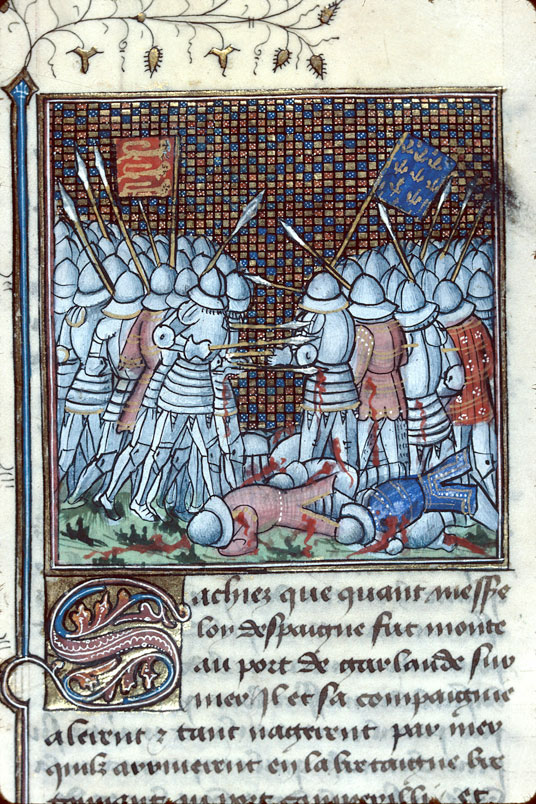 Sachiez que quant messe
loy despaigne fut monte
au port de garlande sur
mer Il et sa compaignie
alerent ⁊ tant nagerent par mer
quilz arriuerent en la bretaigne bre
tonnant au port
et